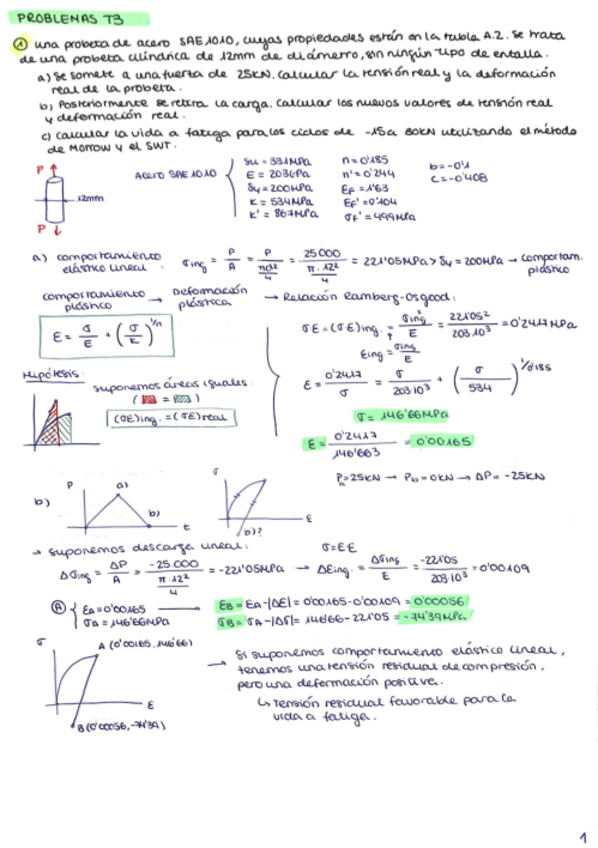 PROBLEMAS T3
① una probeta de acero SAE 1010, cuyas propiedades están en la tabla A.2. Se trata
de una probeta cilíndrica de 12mm de diámetro, sin ningún tipo de entalla.
a) Se somete a una fuerza de 25KN. Calcular la tensión real y la deformación
real de la probeta.
b) Posteriormente se retira la carga. Calcular los nuevos valores de tensión real
y deformación real.
c) Calcular la vida a fatiga para los ciclos de -15 a 80KN utilizando el método
de MORROW y el SWT.
P
12mm
P
ACERO SAE 1010
Su = 331MPa n=0'185 b=-0'1
E = 203GPa n'=0'244 c=-0'408
Sy = 200MPa EF=1'63
K = 534MPa EF'=0'104
K' = 867MPa σF'=499MPa
a) comportamiento elástico lineal: σing = P/A = P/(πd²/4) = 25000/(π·12²/4) = 221'05MPa > Sy = 200MPa → comportam. plástico
comportamiento plástico → Deformación plástica → Relación Ramberg-Osgood:
ε = σ/E + (σ/K)^1/n
σε = (σε)ing. = σing²/E = 221'05²/203·10³ = 0'2417MPa
εing = σing/E
Hipótesis:
suponemos áreas iguales:
( = )
(σε)ing. = (σε)real
ε = 0'2417/σ = σ/203·10³ + (σ/534)^1/0'185
σ = 146'66MPa
ε = 0'2417/146'663 = 0'00165
Pa=25KN → Pb=0KN → ΔP= -25KN
b)
P a) b) t
σ ε b)?
→ suponemos descarga lineal: σ=Eε
Δσing = ΔP/A = -25.000/(π·12²/4) = -221'05MPa → Δεing. = Δσing/E = -221'05/203·10³ = 0'00109
Ⓐ εA=0'00165 → εB = εA-|Δε| = 0'00165-0'00109 = 0'00056
σA=146'66MPa σB = σA-|Δσ| = 146'66-221'05 = -74'39MPa
σ A (0'00165, 146'66)
ε
B (0'00056, -74'39)
→ Si suponemos comportamiento elástico lineal,
tenemos una tensión residual de compresión,
pero una deformación positiva.
↳ Tensión residual favorable para la
vida a fatiga.
1